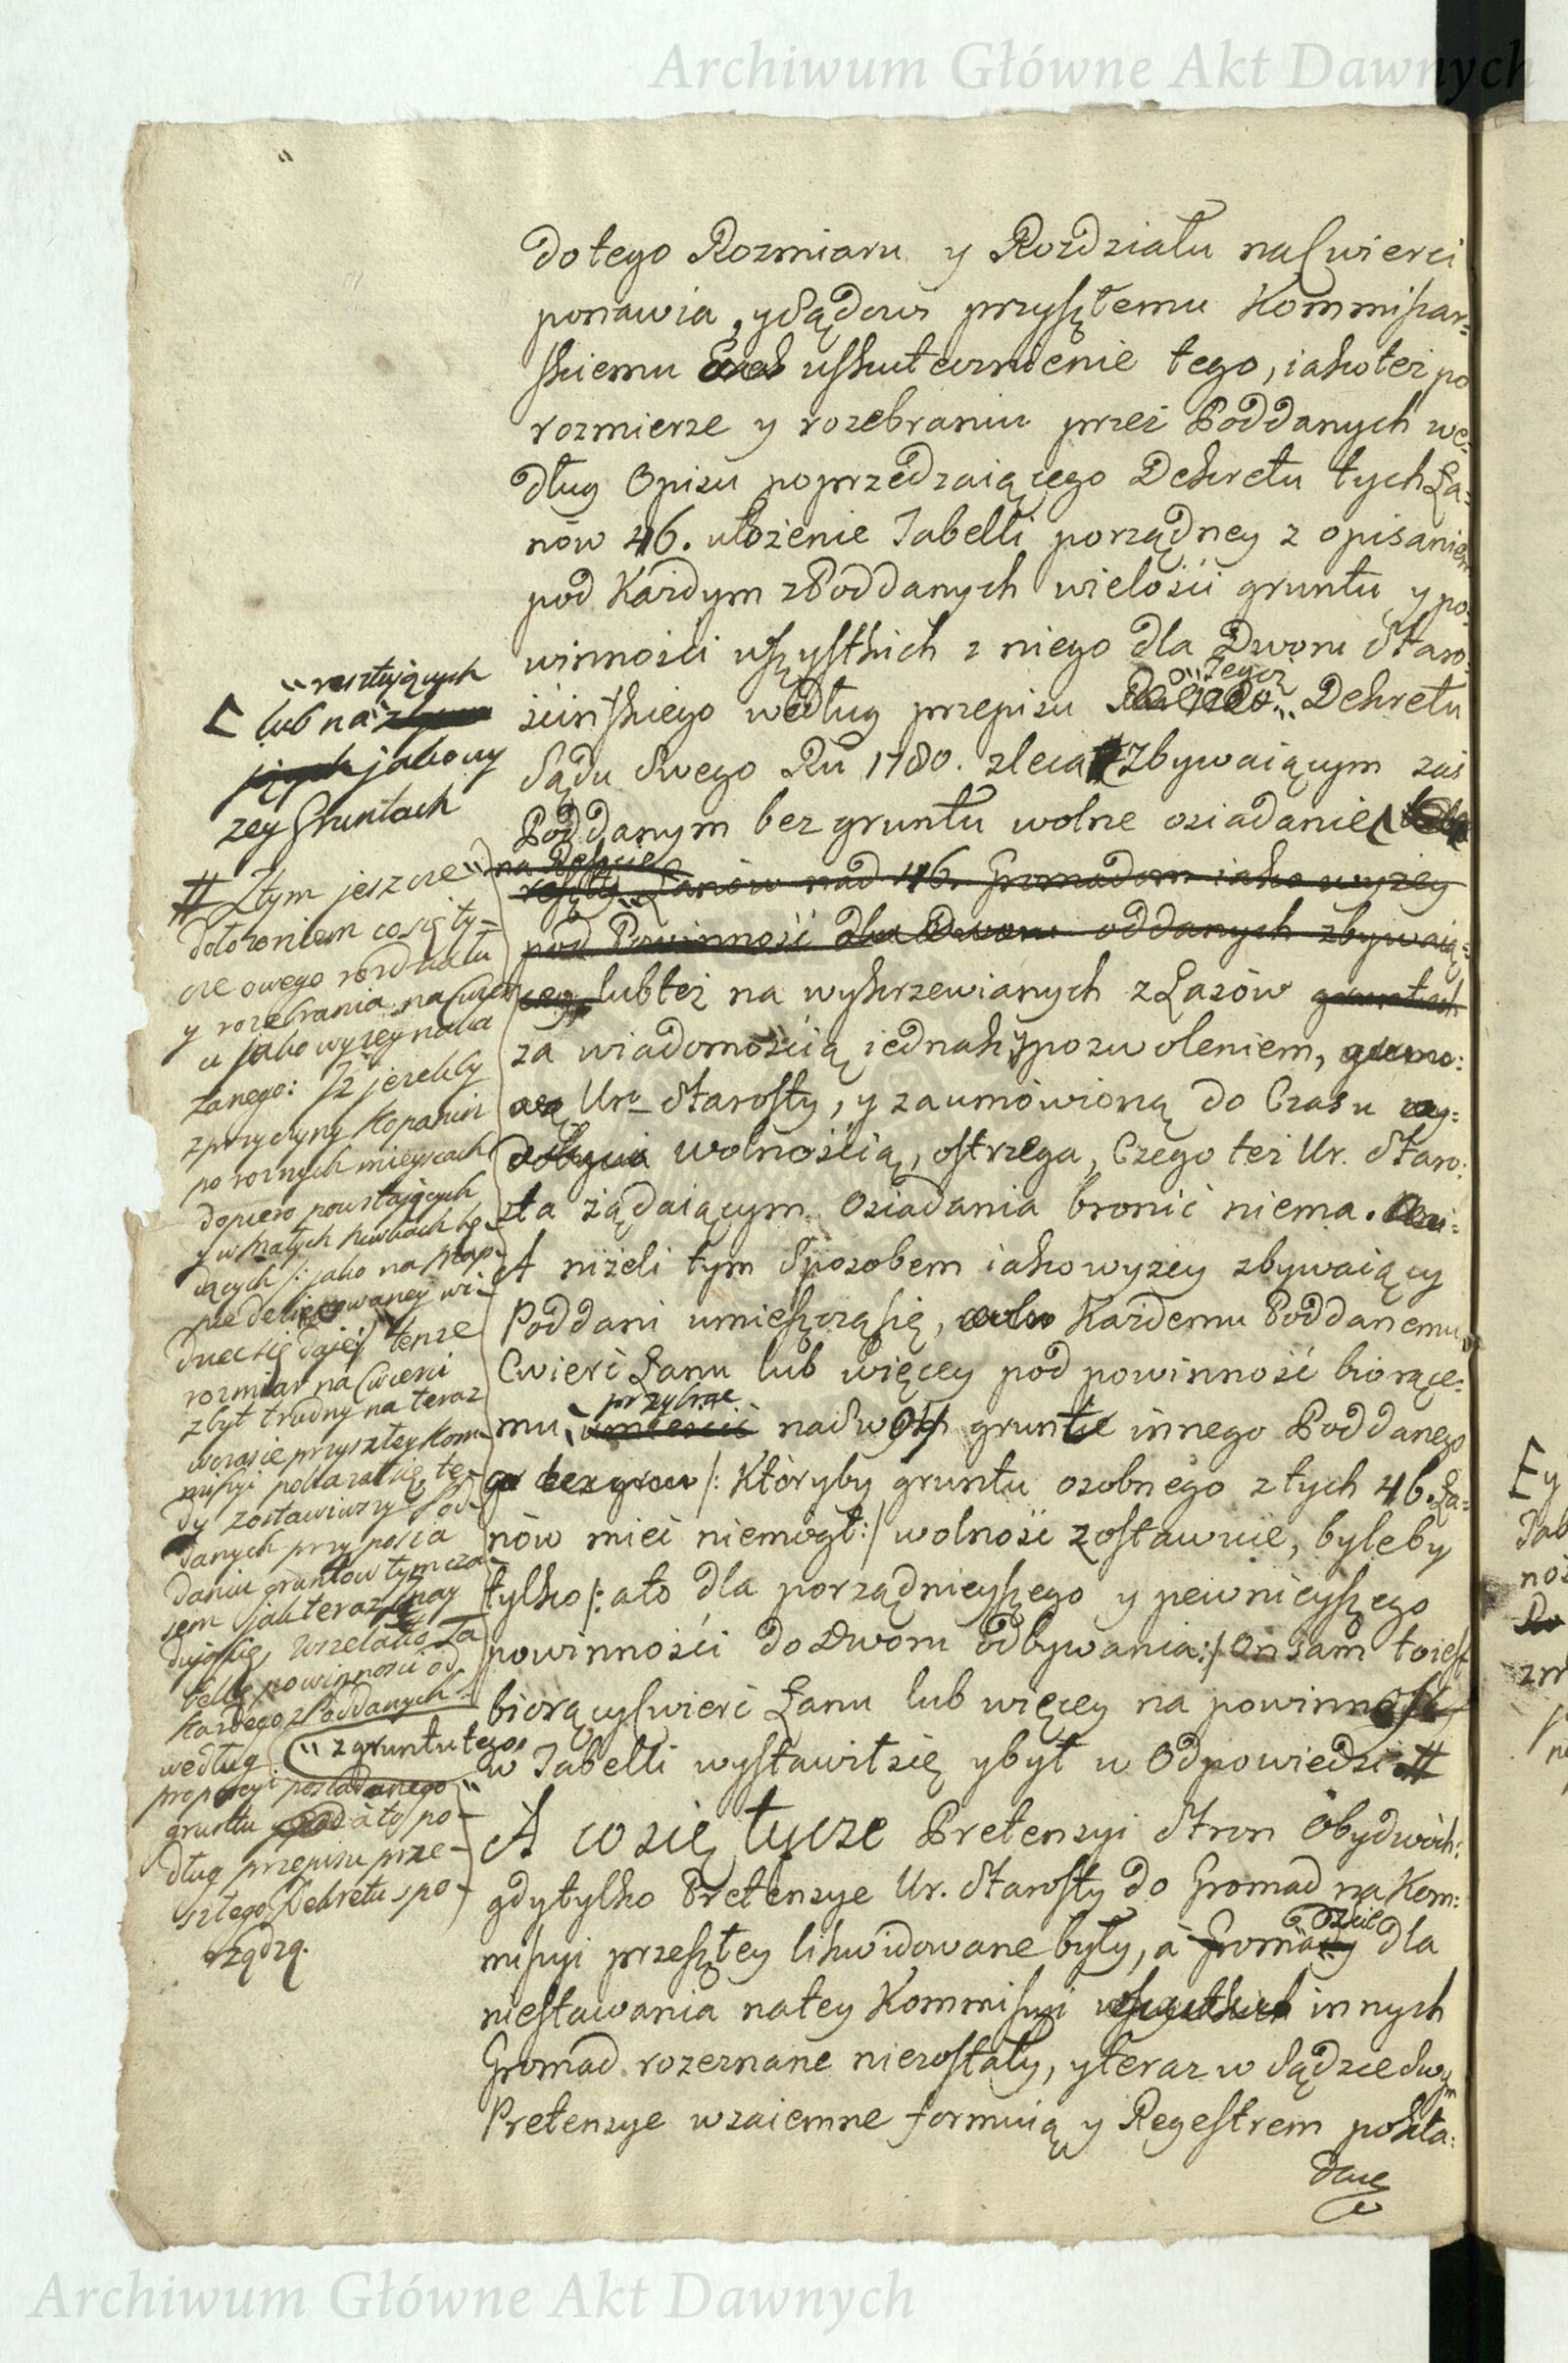 Archiwum Główne Akt Dawnych
do tego Rozmiaru y Rozdziału na Cwierci
ponawia, y Sądowi przyszłemu Kommissar=
skiemu uskutecznienie tego, iako też po
rozmierze y rozebraniu przez Poddanych we=
dług Opisu poprzedzaiącego Dekretu tych Ła=
nów 46. ułożenie Tabelli porządney z opisaniem
pod Każdym z Poddanych wielości gruntu y po=
winności wszystkich z niego dla Dworu Staro=
Tegoż
ścińskiego według przepisu Dekretu
Sądu Swego Ru 1780. zleca Zbywaiącym zaś
Poddanym bez gruntu wolne osiadanie
na
reszty Łanów nad 46. Gromadom iako wyżey
pod Powinność dla Dworu oddanych zbywaią=
cey, lub też na wykrzewianych z Lasów gruntach
za wiadomością iednak y pozwoleniem,
Uro Starosty, y za umówioną do Czasu
wolnością, ostrzega, Czego też Ur. Staro=
sta żądaiącym Osiadania bronić niema.
A niżeli tym Sposobem iako wyżey zbywaiący
Poddani umieszczą się, Każdemu Poddanemu
Cwierć Łanu lub więcey pod powinność biorące=
przybrać
mu, umieścić na Swoim gruncie innego Poddanego
/: Któryby gruntu osobnego z tych 46. Ła=
nów mieć niemogł :/ wolność zostawuie, byleby
tylko /: a to dla porządnieyszego y pewnieyszego
powinności do Dworu odbywania :/ On sam toiest
biorący Cwierć Łanu lub więcey na powinność
w Tabelli wystawił się y był w Odpowiedzi #
A co się tycze Pretensyi Stron Obydwóch:
gdy tylko Pretensye Ur. Starosty do Gromad na Kom=
missyi przeszłey likwidowane były, a Gromady dla
niestawania na tey Kommissyi innych
Gromad rozeznane niezostały, y teraz w Sądzie Swym
Pretensye wzaiemne formuią y Regestrem pokła=
dane
resztujących
lub na
jakowy
zey Gruntach
# Z tym jeszcze
dołożeniem co się ty=
cze owego rozdziału
y rozebrania na Cwier
ci jako wyżey naka
zanego: Iż jeżeliby
z przyczyny Kopanin
po rożnych mieyscach
dopiero powstających
y w małych niwkach bę=
dących /: jako na Map=
pie wi=
dzieć się daje :/ tenże
rozmiar na Cwierci
zbyt trudny na teraz
w czasie przyszłey Kom=
missyi pokazał się, te=
dy zostawiwszy Pod=
danych przy posia
daniu gruntow tymcza=
sem jak teraz znay
dują się, wszelako Ta
bellę powinności od
każdego z Poddanych
według z gruntu tego
proporcyi posiadanego
gruntu a to po=
dług przepisu prze=
szłego Dekretu spo=
rządzą.
Archiwum Główne Akt Dawnych